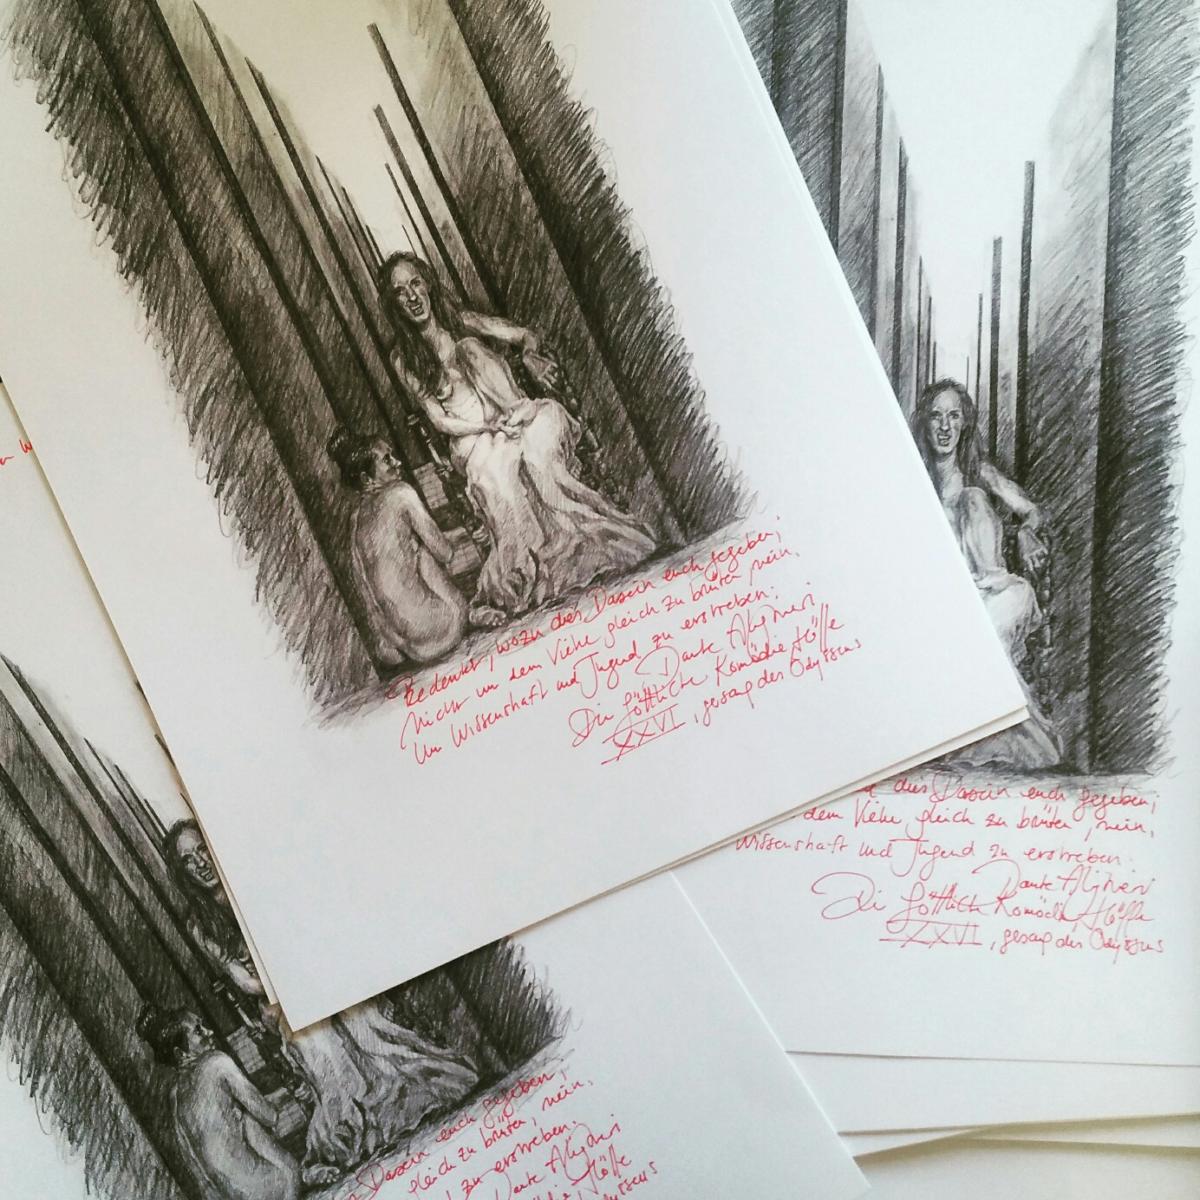 Bedenkt, wozu dies Dasein euch gegeben;
Nicht um dem Viehe gleich zu brüten, nein,
Um Wissenschaft und Jugend zu erstreben:
Dante Alighieri
Die göttliche Komödie, Hölle
XXVI, gesang des Odyssus
dies Dasein euch gegeben;
dem Viehe gleich zu brüten, nein,
Wissenschaft und Jugend zu erstreben:
Dante Alighieri
Die göttliche Komödie, Hölle
XXVI, gesang des Odyssus
Dasein euch gegeben;
gleich zu brüten, nein,
zu erstreben:
Dante Alighieri
Hölle